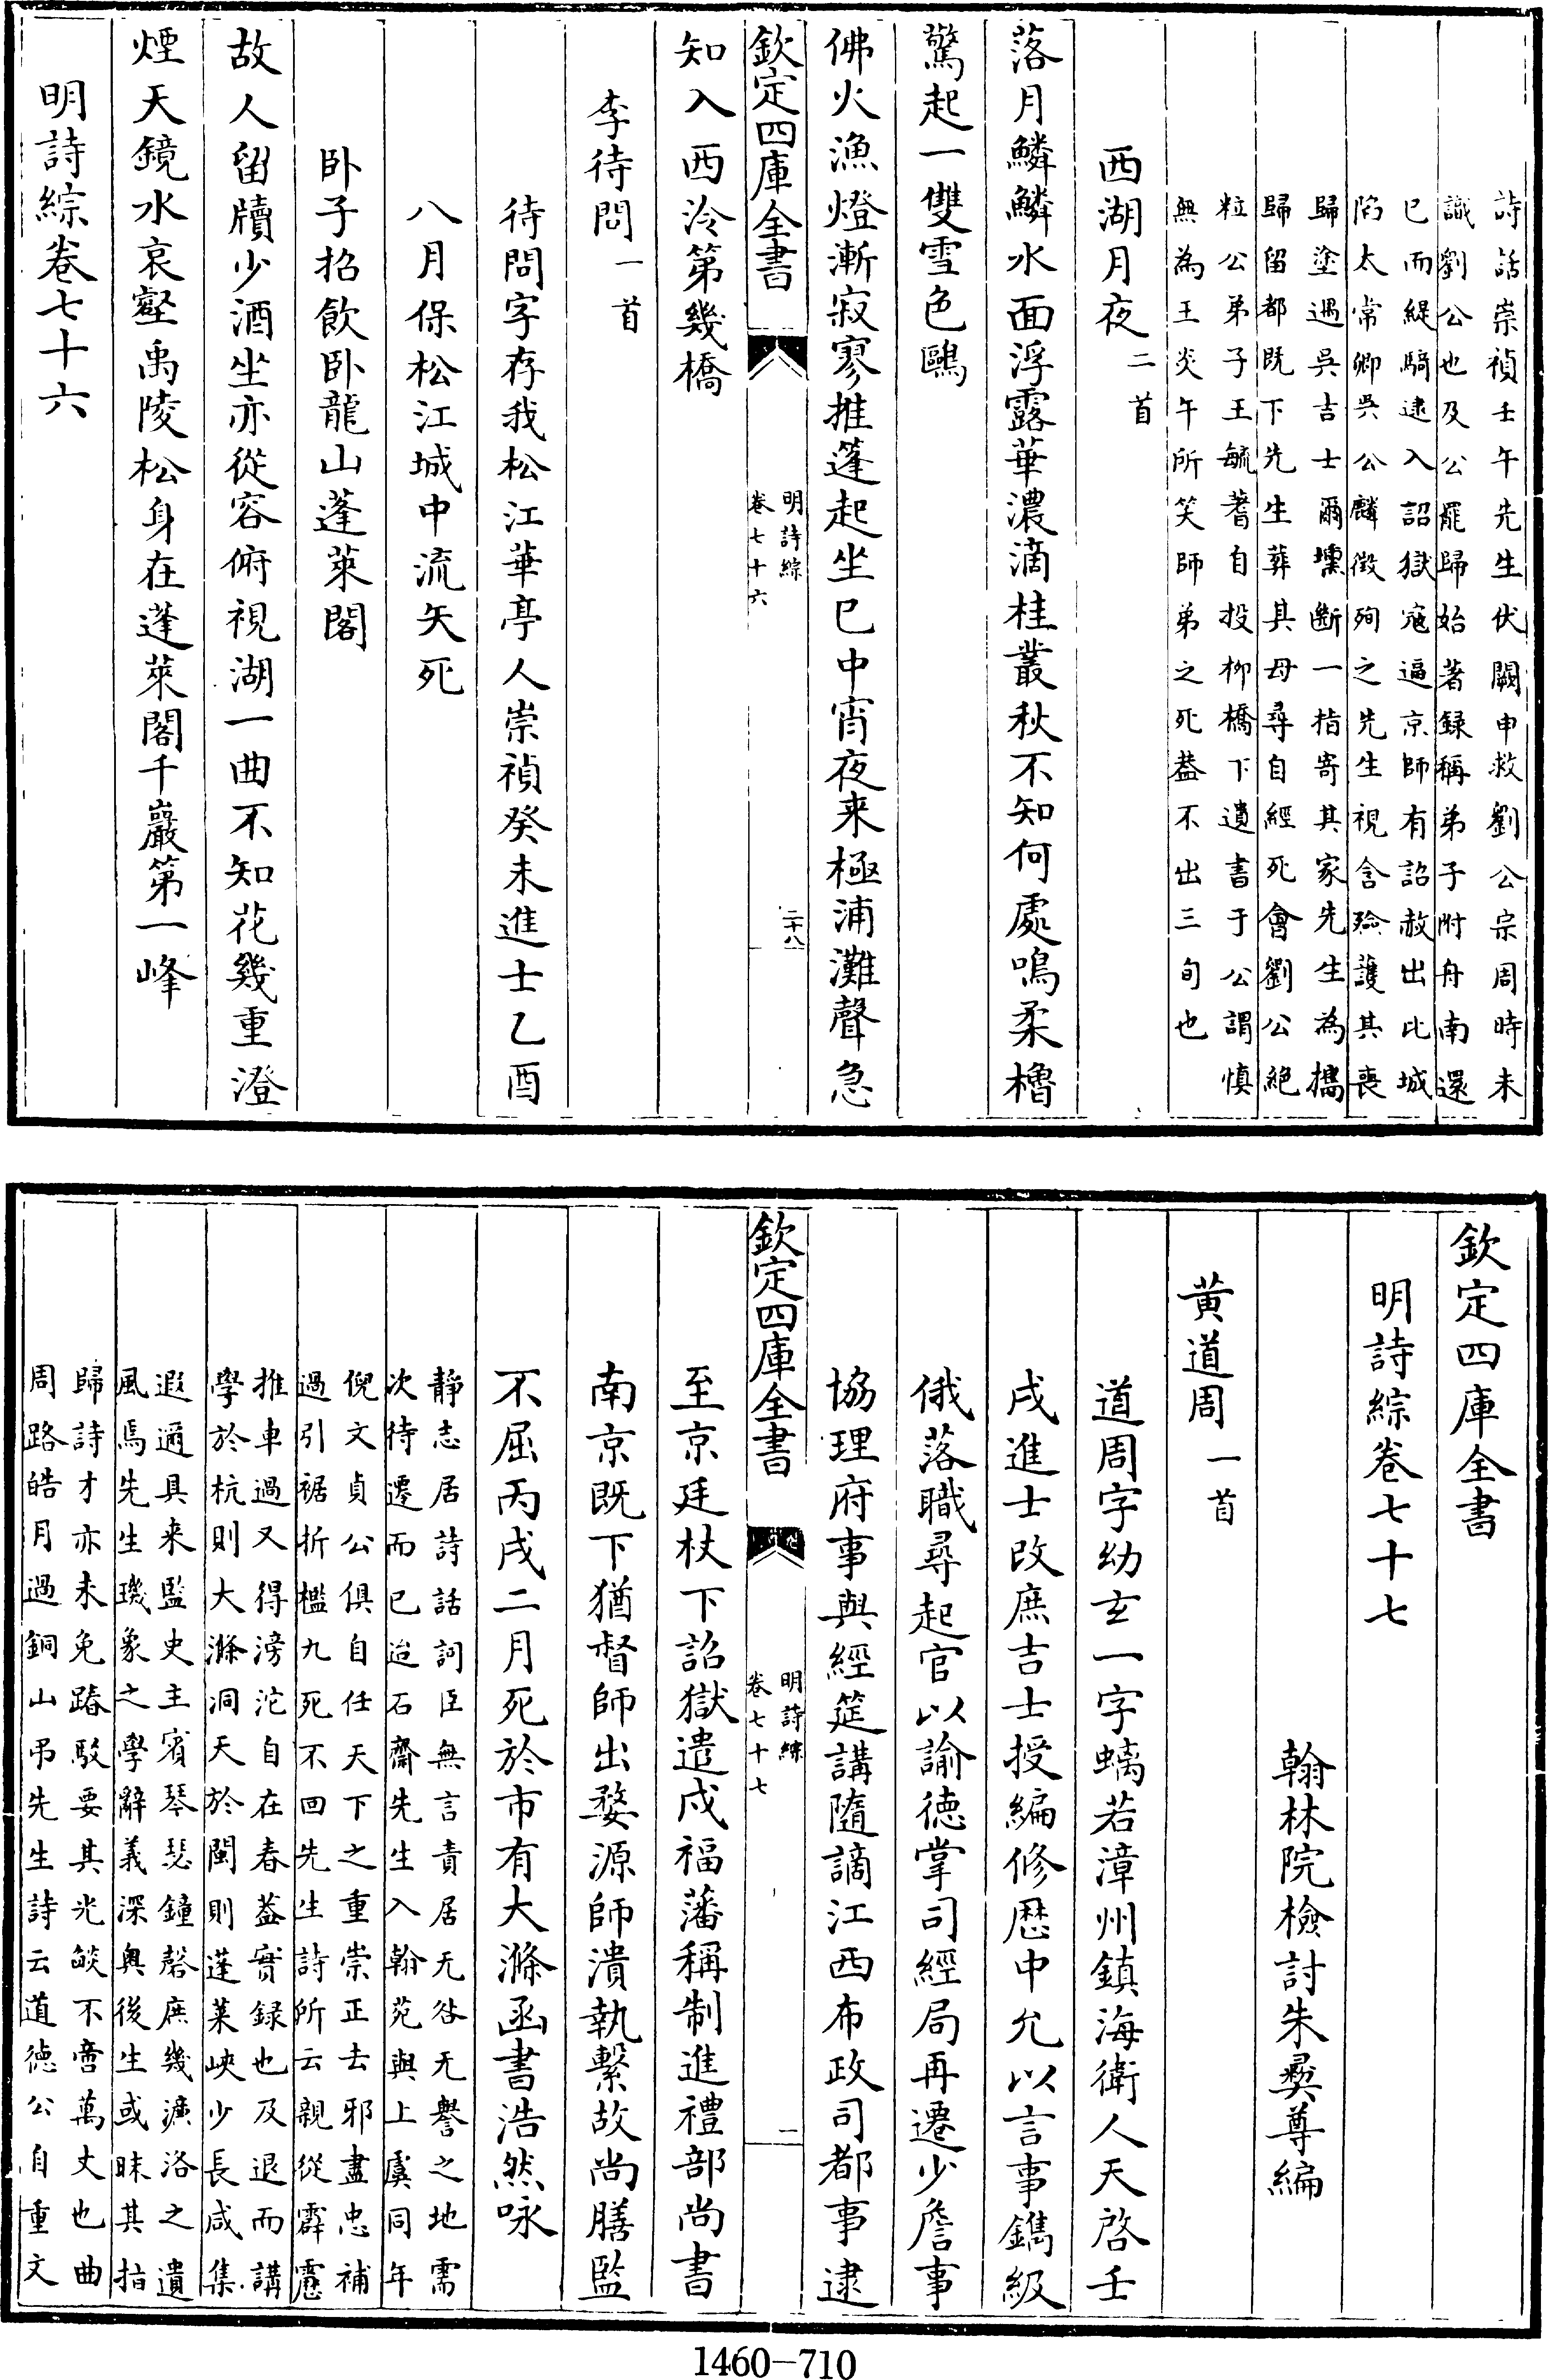 詩話崇禎壬午先生伏闕申救劉公宗周時未
識劉公也及公罷歸始著録稱弟子附舟南還
已而緹騎逮入詔獄寇逼京師有詔赦出比城
陷太常卿吳公麟徴殉之先生視含殮護其喪
歸塗遇吳吉士爾壎斷一指寄其家先生為擕
歸留都既下先生葬其母尋自經死會劉公絶
粒公弟子王毓蓍自投柳橋下遺書于公謂慎
無為王炎午所笑師弟之死葢不出三旬也
西湖月夜二首
落月鱗鱗水面浮露華濃滴桂叢秋不知何處鳴柔櫓
驚起一雙雪色鷗
佛火漁燈漸寂寥推蓬起坐已中宵夜来極浦灘聲急
欽定四庫全書
明詩綜
卷七十六
二十八
知入西泠第幾橋
李待問一首
待問字存我松江華亭人崇禎癸未進士乙酉
八月保松江城中流矢死
卧子招飲卧龍山蓬萊閣
故人留牘少酒坐亦從容俯視湖一曲不知花幾重澄
煙天鏡水哀壑禹陵松身在蓬萊閣千巖第一峰
明詩綜卷七十六
欽定四庫全書
明詩綜卷七十七
翰林院檢討朱彛尊編
黄道周一首
道周字幼玄一字螭若漳州鎮海衛人天啓壬
戌進士改庶吉士授編修歴中允以言事鐫級
俄落職尋起官以諭徳掌司經局再遷少詹事
協理府事與經筵講隨謫江西布政司都事逮
欽定四庫全書
明詩綜
卷七十七
二
至京廷杖下詔獄遣戍福藩稱制進禮部尚書
南京既下猶督師出婺源師潰執繫故尚膳監
不屈丙戌二月死於市有大滌函書浩然咏
静志居詩話詞臣無言責居无咎无譽之地需
次待遷而已迨石齋先生入翰苑與上虞同年
倪文貞公俱自任天下之重崇正去邪盡忠補
過引裾折檻九死不回先生詩所云親從霹靂
推車過又得滂沱自在春葢實録也及退而講
學於杭則大滌洞天於閩則蓬萊峽少長咸集
遐邇具来監史主賓琴瑟鐘磬庶幾濂洛之遺
風焉先生璣象之學辭義深奥後生或昧其指
歸詩才亦未免踳駁要其光燄不啻萬丈也曲
周路皓月過銅山吊先生詩云道徳公自重文
1460—710